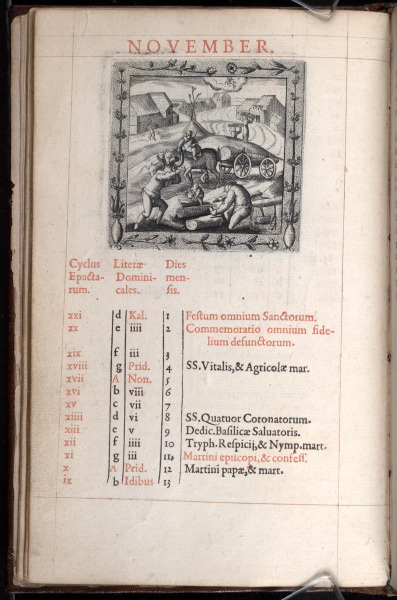 NOVEMBER.
Cyclus Literæ Dies
Epacta- Domini- men-
rum. cales. sis.
xxi d Kal. 1 Festum omnium Sanctorum.
xx e iiii 2 Commemoratio omnium fide-
lium defunctorum.
xix f iii 3
xviii g Prid. 4 SS. Vitalis, & Agricolæ mar.
xvii A Non. 5
xvi b viii 6
xv c vii 7
xiiii d vi 8 SS. Quatuor Coronatorum.
xiii e v 9 Dedic. Basilicæ Saluatoris.
xii f iiii 10 Tryph. Respicij, & Nymp. mart.
xi g iii 11 Martini episcopi, & confess.
x A Prid. 12 Martini papæ, & mart.
ix b Idibus 13